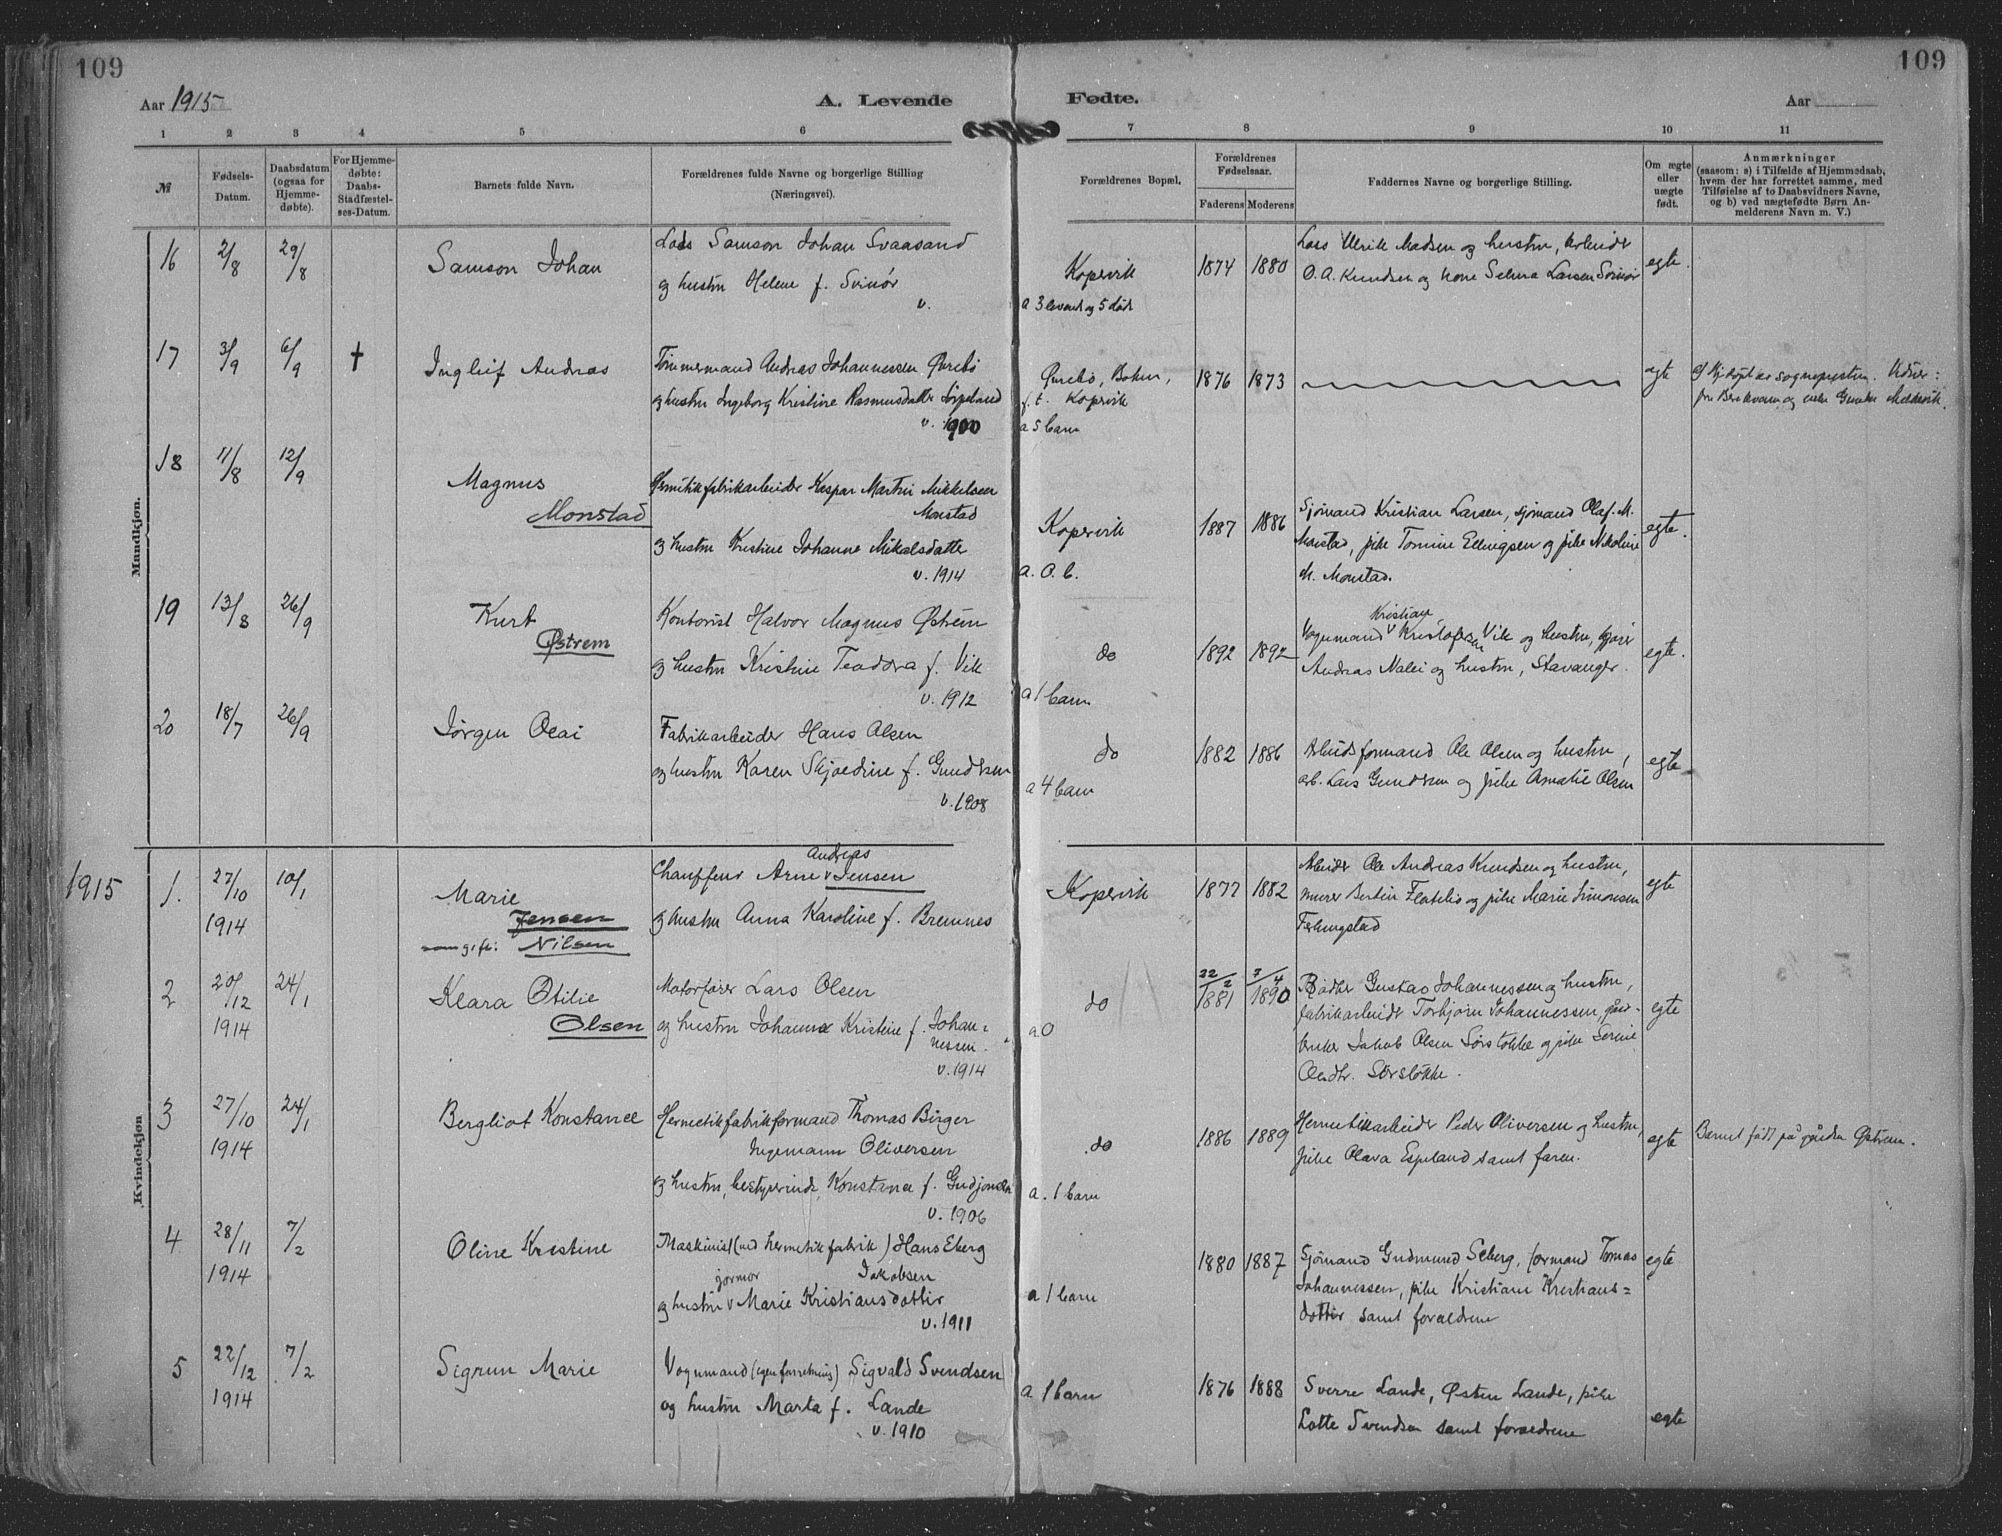 109
109
Aar 1915
A. Levende
Fødte.
Aar
1 2 3 4 5 6 7 8 9 10 11
№
Fødsels-Datum.
Daabsdatum (ogsaa for Hjemme-døbte).
For Hjemme-døbte: Daabs-Stadfæstel-ses-Datum.
Barnets fulde Navn.
Forældrenes fulde Navne og borgerlige Stilling
(Næringsvei).
Forældrenes Bopæl.
Forældrenes Fødselsaar.
Faderens Moderens
Faddernes Navne og borgerlige Stilling.
Om ægte eller uægte født.
Anmærkninger
(saasom: a) i Tilfælde af Hjemmedaab,
hvem der har forrettet samme, med
Tilføielse af to Daabsvidners Navne,
og b) ved uægtefødte Børn An-
melderens Navn m. V.)
Mandkjøn.
16 2/8 29/8 Samson Johan
Lods Samson Johan Svaasand
og hustru Helene f. Svinør
v.
Kopervik
a 3 levend og 5 død
1874 1880
Lars Ulrik Madsen og hustru, arbeider
O. A. Knudsen og kone Selma Larsen Svinør
egte.
17 3/9 6/9 † Ingleif Andras
Tømmermand Andras Johannessen Øvrebø
og hustru Ingeborg Kristine Rasmusdatter Sørpeland
v. 1900
Øvrebø, Bokn,
f. t. Kopervik
a 5 barn
1876 1873
egte
sognepresten. Vidner:
18 11/8 12/9 Magnus
Monstad
Hermetikfabrikarbeider Kaspar Martin Mikkelsen
Monstad
og hustru Kristine Johanne Mikalsdatter
v. 1914
Kopervik
a. 0. b.
1887 1886
Sjømand Kristian Larsen, sjømand Olaf M.
Monstad, pike Tomine Ellingsen og pike Nikoline
M. Monstad.
egte.
19 13/8 26/9 Kurt
Østrem
Kontorist Halvor Magnus Østrem
og hustru Kristine Teodora f. Vik
v. 1912
do
a 1 barn
1892 1892
Kristian
Vognmand Kristofersen Vik og hustru, kjører
Andreas Malei og hustru, Stavanger.
egte.
20 18/7 26/9 Jørgen Olai
Fabrikarbeider Hans Olsen
og hustru Karen Skjoldine f. Gundersen
v. 1908
do
a 4 barn
1882 1886
Arbeidsformand Ole Olsen og hustru,
arb. Lars Gundersen og pike Amalie Olsen
egte
Kvindekjøn
1915
1. 27/10 1914 10/1 Marie
Jensen
som gift: Nilsen
Andreas
Chauffeur Arne Jensen
og hustru Anna Karoline f. Bremnes
Kopervik
1877 1882
Arbeider Ole Andreas Knudsen og hustru,
murer Bertin Flotelid og pike Marie Simonsen
Ferkingstad
egte
2 20/12 1914 24/1 Klara Otilie
Olsen
Motorfører Lars Olsen
og hustru Johanne Kristine f. Johan=
nessen.
v. 1914
do
a. 0
22/2 1881 7/4 1890
Bødker Gustav Johannessen og hustru,
fabrikarbeider Torbjørn Johannessen, gård-
bruker Jakob Olsen Sørstokke og pike Serine
Olsdtr. Sørstokke.
egte
3 27/10 1914 24/1 Bergliot Konstance
Hermetikfabrikformand Thomas Birger
Ingemann Oliversen
og hustru, bestyrerinde, Konstance f. Gudjonsen
v. 1906
do
a. 1 barn
1886 1889
Hermetikarbeider Peder Oliversen og hustru,
pike Olava Espeland samt faren.
egte
Barnet født på gården Østrem.
4 28/11 1914 7/2 Oline Kristine
Maskinist (ved hermetikfabrik) Hans Eberg
Jakobsen
jormor
og hustru Marie Kristiansdatter
v. 1911
a 1 barn
1880 1887
Sjømand Gudmund Seberg, formand Tomas
Johannessen, pike Kristiane Kristians=
datter samt forældrene
egte
5 22/12 1914 7/2 Sigrun Marie
Vognmand (egen forretning) Sigvald Svendsen
og hustru Marta f. Lande
v. 1910
a 1 barn
1876 1888
Sverre Lande, Østen Lande, pike
Lotte Svendsen samt forældrene
egte